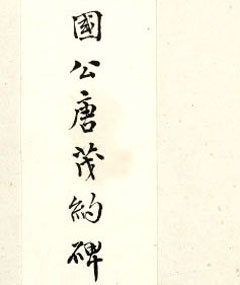 國公唐茂約碑